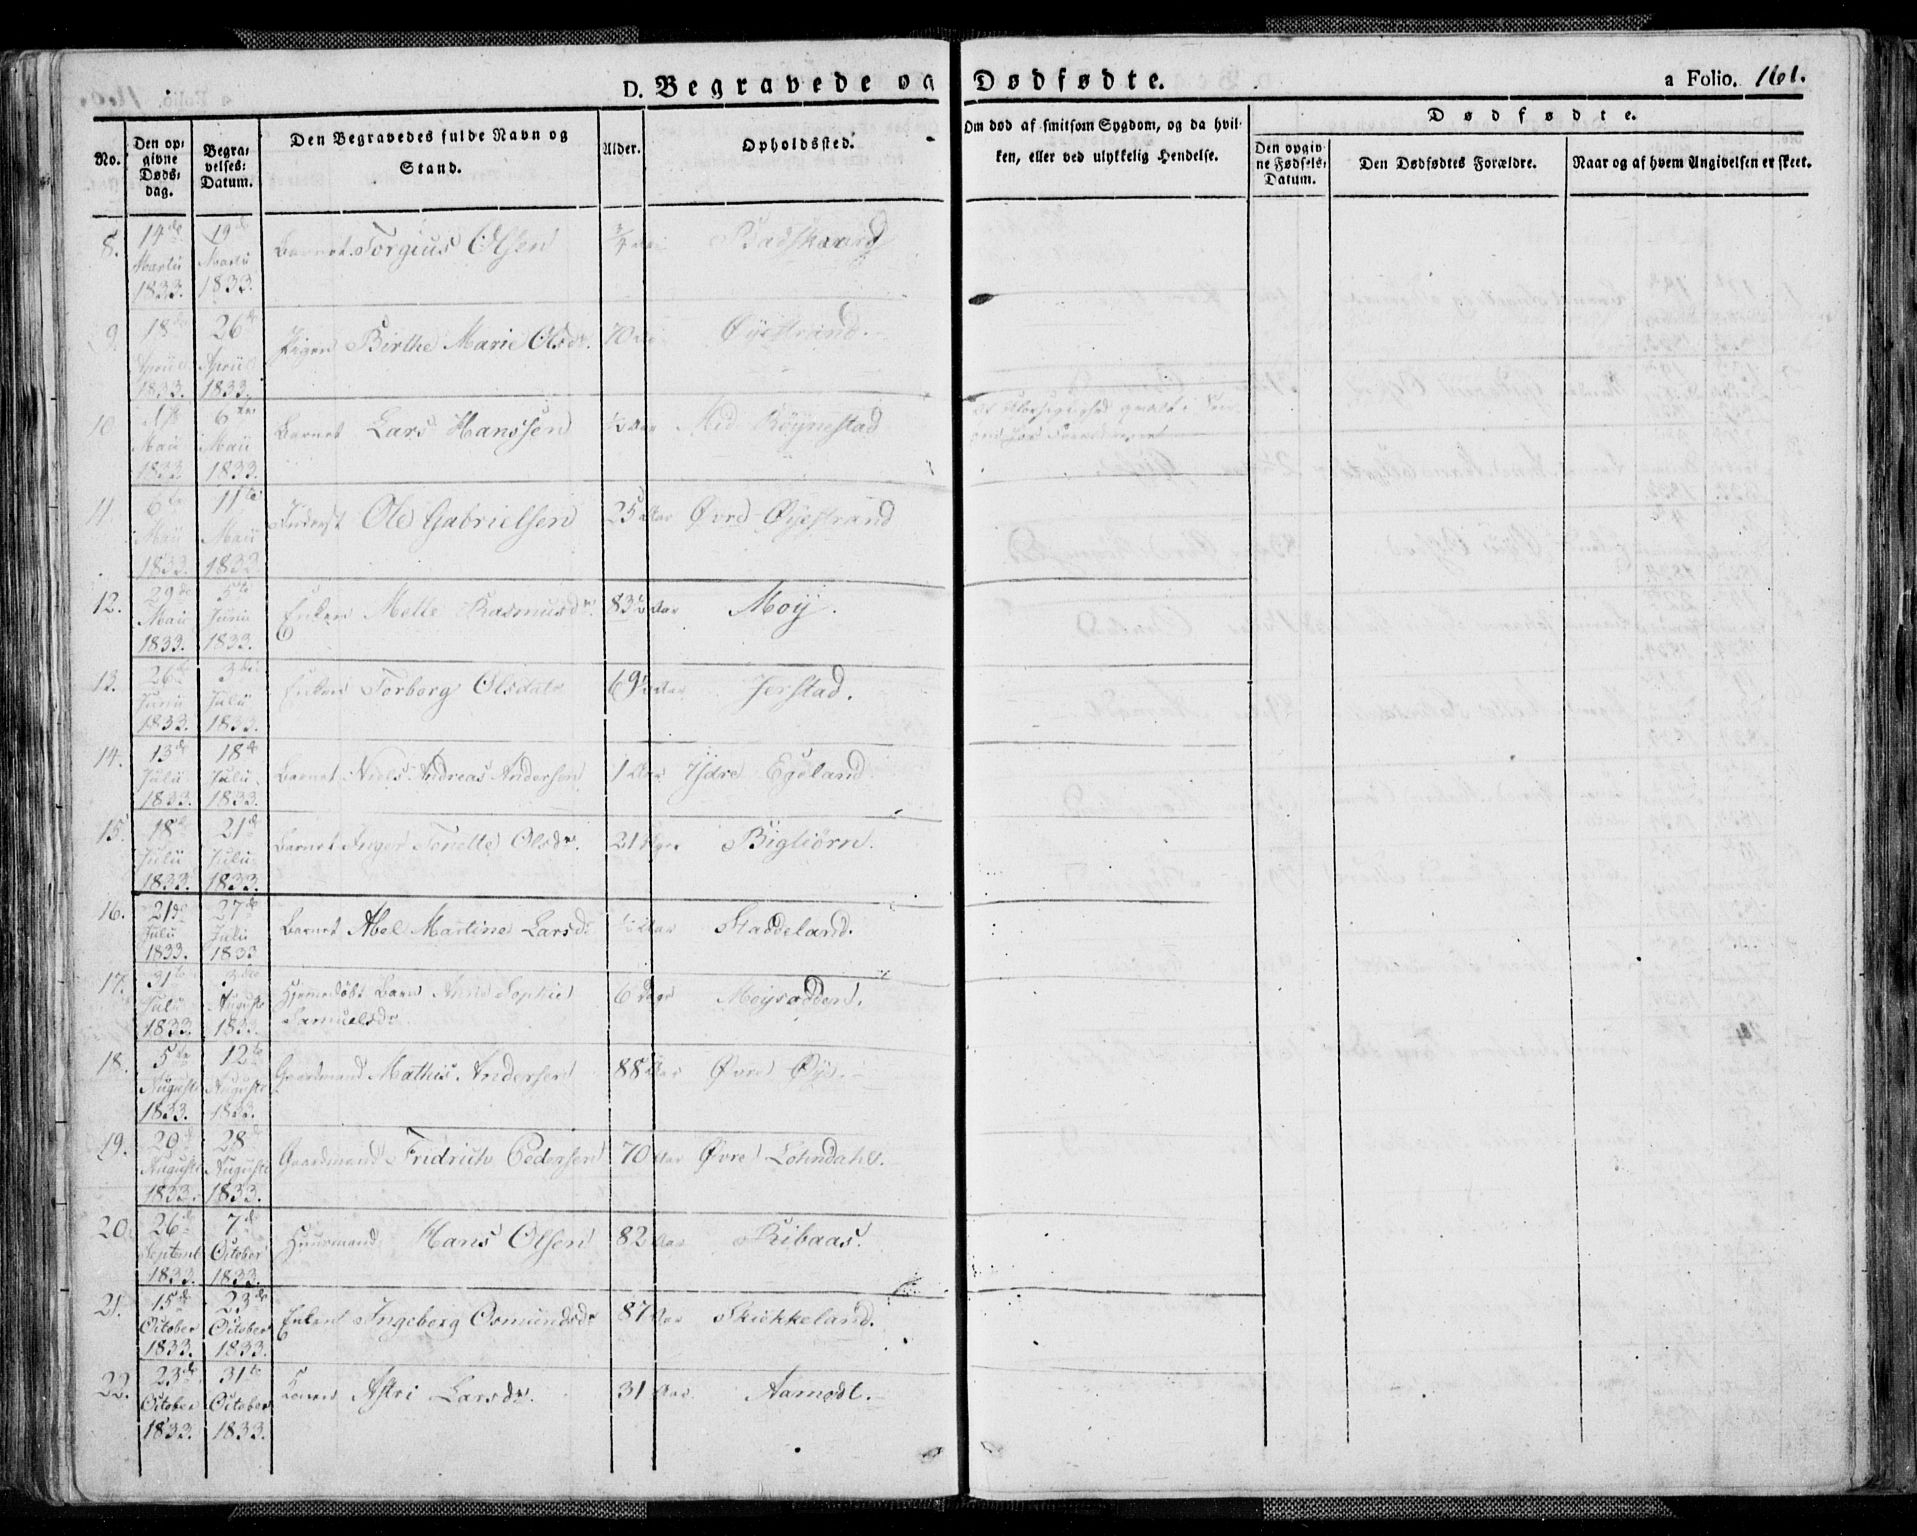 D. Begravede og Dødfødte. a Folio. 161.
No.
Den op-
givne
Døds-
dag.
Begra-
velses-
Datum.
Den Begravedes fulde Navn og
Stand.
Alder.
Opholdssted.
Om død af smitsom Sygdom, og da hvil-
ken, eller ved ulykkelig Hendelse.
Dødfødte.
Den opgiv-
ne Fødsels-
Datum.
Den Dødfødtes Forældre.
Naar og af hvem Angivelsen er skeet.
8. 14de Martii 1833. 19de Martii 1833. Barnet Torgius Olsen
9. 18de Aprill 1833. 26de Aprill 1833. Pigen Birthe Marie Olsdr. 70 Øyestrand.
10. Maii 1833 6te Maii 1833. Barnet Lars Hanssen Aar Mid Røynestad
11. 6te Maii 1833 11te Maii 1833 Inderst Ole Gabrielsen 25 Aar Øvre Øyestrand
12. 29de Maii 1833. 5te Junii 1833. Enken Melle Rasmusdr. 83½ Aar Moy.
13. 26de Junii 1833. 3die Julii 1833. Enken Torborg Olsdatr 69½ Aar Jerstad.
14. 13de Julii 1833. 18de Julii 1833. Barnet Niels Andreas Andersen 1 Aar Ydre Egeland
15. 18de Julii 1833. 21de Julii 1833. Barnet Inger Tonette Olsdr. 21 Uger Bigliørn.
16. 21de Julii 1833. 27de Julii 1833 Barnet Abel Martine Larsdr Aar Staddeland.
17. 31te Julii 1833. 3die Augusti 1833. Hjemmedøbt Barn Anne Sophie
Samuelsdr. 6 Dage Moysodden.
18. 5te Augusti 1833. 12te Augusti 1833. Gaardmand Mathis Andersen 88 Aar Øvre Øye.
19. 20de Augusti 1833. 28de Augusti 1833. Gaardmand Fridrich Pedersen 70 Aar Øvre Lohndahl.
20. 26de Septembr 1833. 7de October 1833. Huusmand Hans Olsen 82 Aar Ribaas.
21. 15de October 1833. 23de October 1833. Enken Ingeborg Osmundsdr 87 Aar Skiekkeland.
22. 23de October 1833. 31te October 1833. Konen Astri Larsdr. 31 Aar Aamodt.